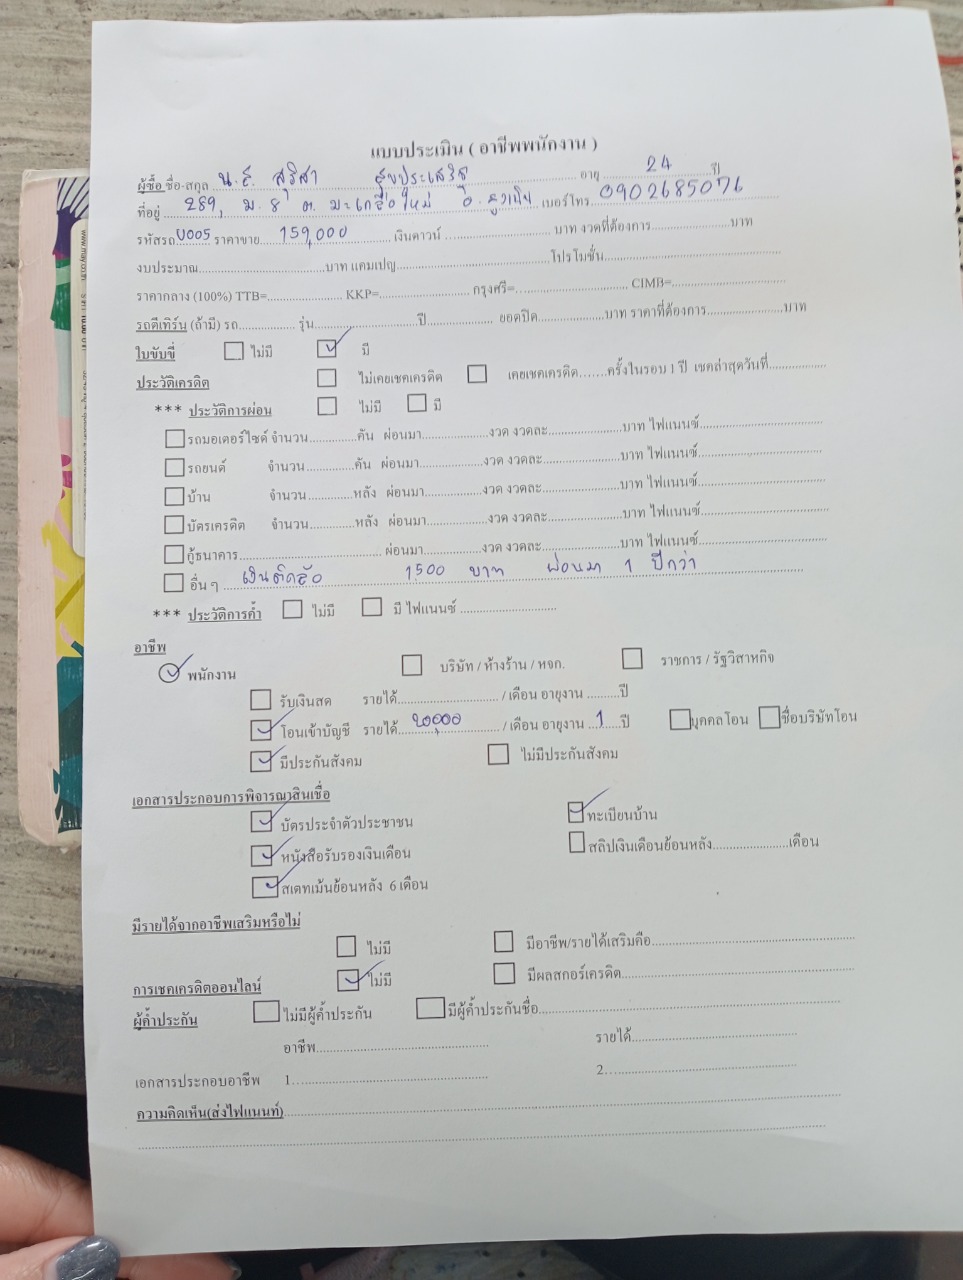 แบบประเมิน ( อาชีพพนักงาน )
ผู้ซื้อ ชื่อ-สกุล น.ส. สุริสา สุขประเสริฐ อายุ 24 ปี
ที่อยู่ 289, ม.8 ต. มะเกลือใหม่ อ. สูงเนิน เบอร์โทร 0902685076
รหัสรถ U005 ราคาขาย 159,000 เงินดาวน์ บาท งวดที่ต้องการ บาท
งบประมาณ บาท แคมเปญ โปรโมชั่น
ราคากลาง (100%) TTB= KKP= กรุงศรี= CIMB=
รถตีเทิร์น (ถ้ามี) รถ รุ่น ปี ยอดปิด บาท ราคาที่ต้องการ บาท
ใบขับขี่ ไม่มี มี
ประวัติเครดิต ไม่เคยเชคเครดิต เคยเชคเครดิต ครั้งในรอบ 1 ปี เชคล่าสุดวันที่
*** ประวัติการผ่อน ไม่มี มี
รถมอเตอร์ไซด์ จำนวน คัน ผ่อนมา งวด งวดละ บาท ไฟแนนซ์
รถยนต์ จำนวน คัน ผ่อนมา งวด งวดละ บาท ไฟแนนซ์
บ้าน จำนวน หลัง ผ่อนมา งวด งวดละ บาท ไฟแนนซ์
บัตรเครดิต จำนวน หลัง ผ่อนมา งวด งวดละ บาท ไฟแนนซ์
กู้ธนาคาร ผ่อนมา งวด งวดละ บาท ไฟแนนซ์
อื่น ๆ เงินติดล้อ 1500 บาท ผ่อนมา 1 ปีกว่า
*** ประวัติการค้ำ ไม่มี มี ไฟแนนซ์
อาชีพ
พนักงาน บริษัท / ห้างร้าน / หจก. ราชการ / รัฐวิสาหกิจ
รับเงินสด รายได้ / เดือน อายุงาน ปี
โอนเข้าบัญชี รายได้ 20,000 / เดือน อายุงาน 1 ปี บุคคลโอน ชื่อบริษัทโอน
มีประกันสังคม ไม่มีประกันสังคม
เอกสารประกอบการพิจารณาสินเชื่อ
บัตรประจำตัวประชาชน ทะเบียนบ้าน
หนังสือรับรองเงินเดือน สลิปเงินเดือนย้อนหลัง เดือน
สเตทเม้นย้อนหลัง 6 เดือน
มีรายได้จากอาชีพเสริมหรือไม่
ไม่มี มีอาชีพ/รายได้เสริมคือ
การเชคเครดิตออนไลน์ ไม่มี มีผลสกอร์เครดิต
ผู้ค้ำประกัน ไม่มีผู้ค้ำประกัน มีผู้ค้ำประกันชื่อ
อาชีพ รายได้
เอกสารประกอบอาชีพ 1. 2.
ความคิดเห็น(ส่งไฟแนนท์)